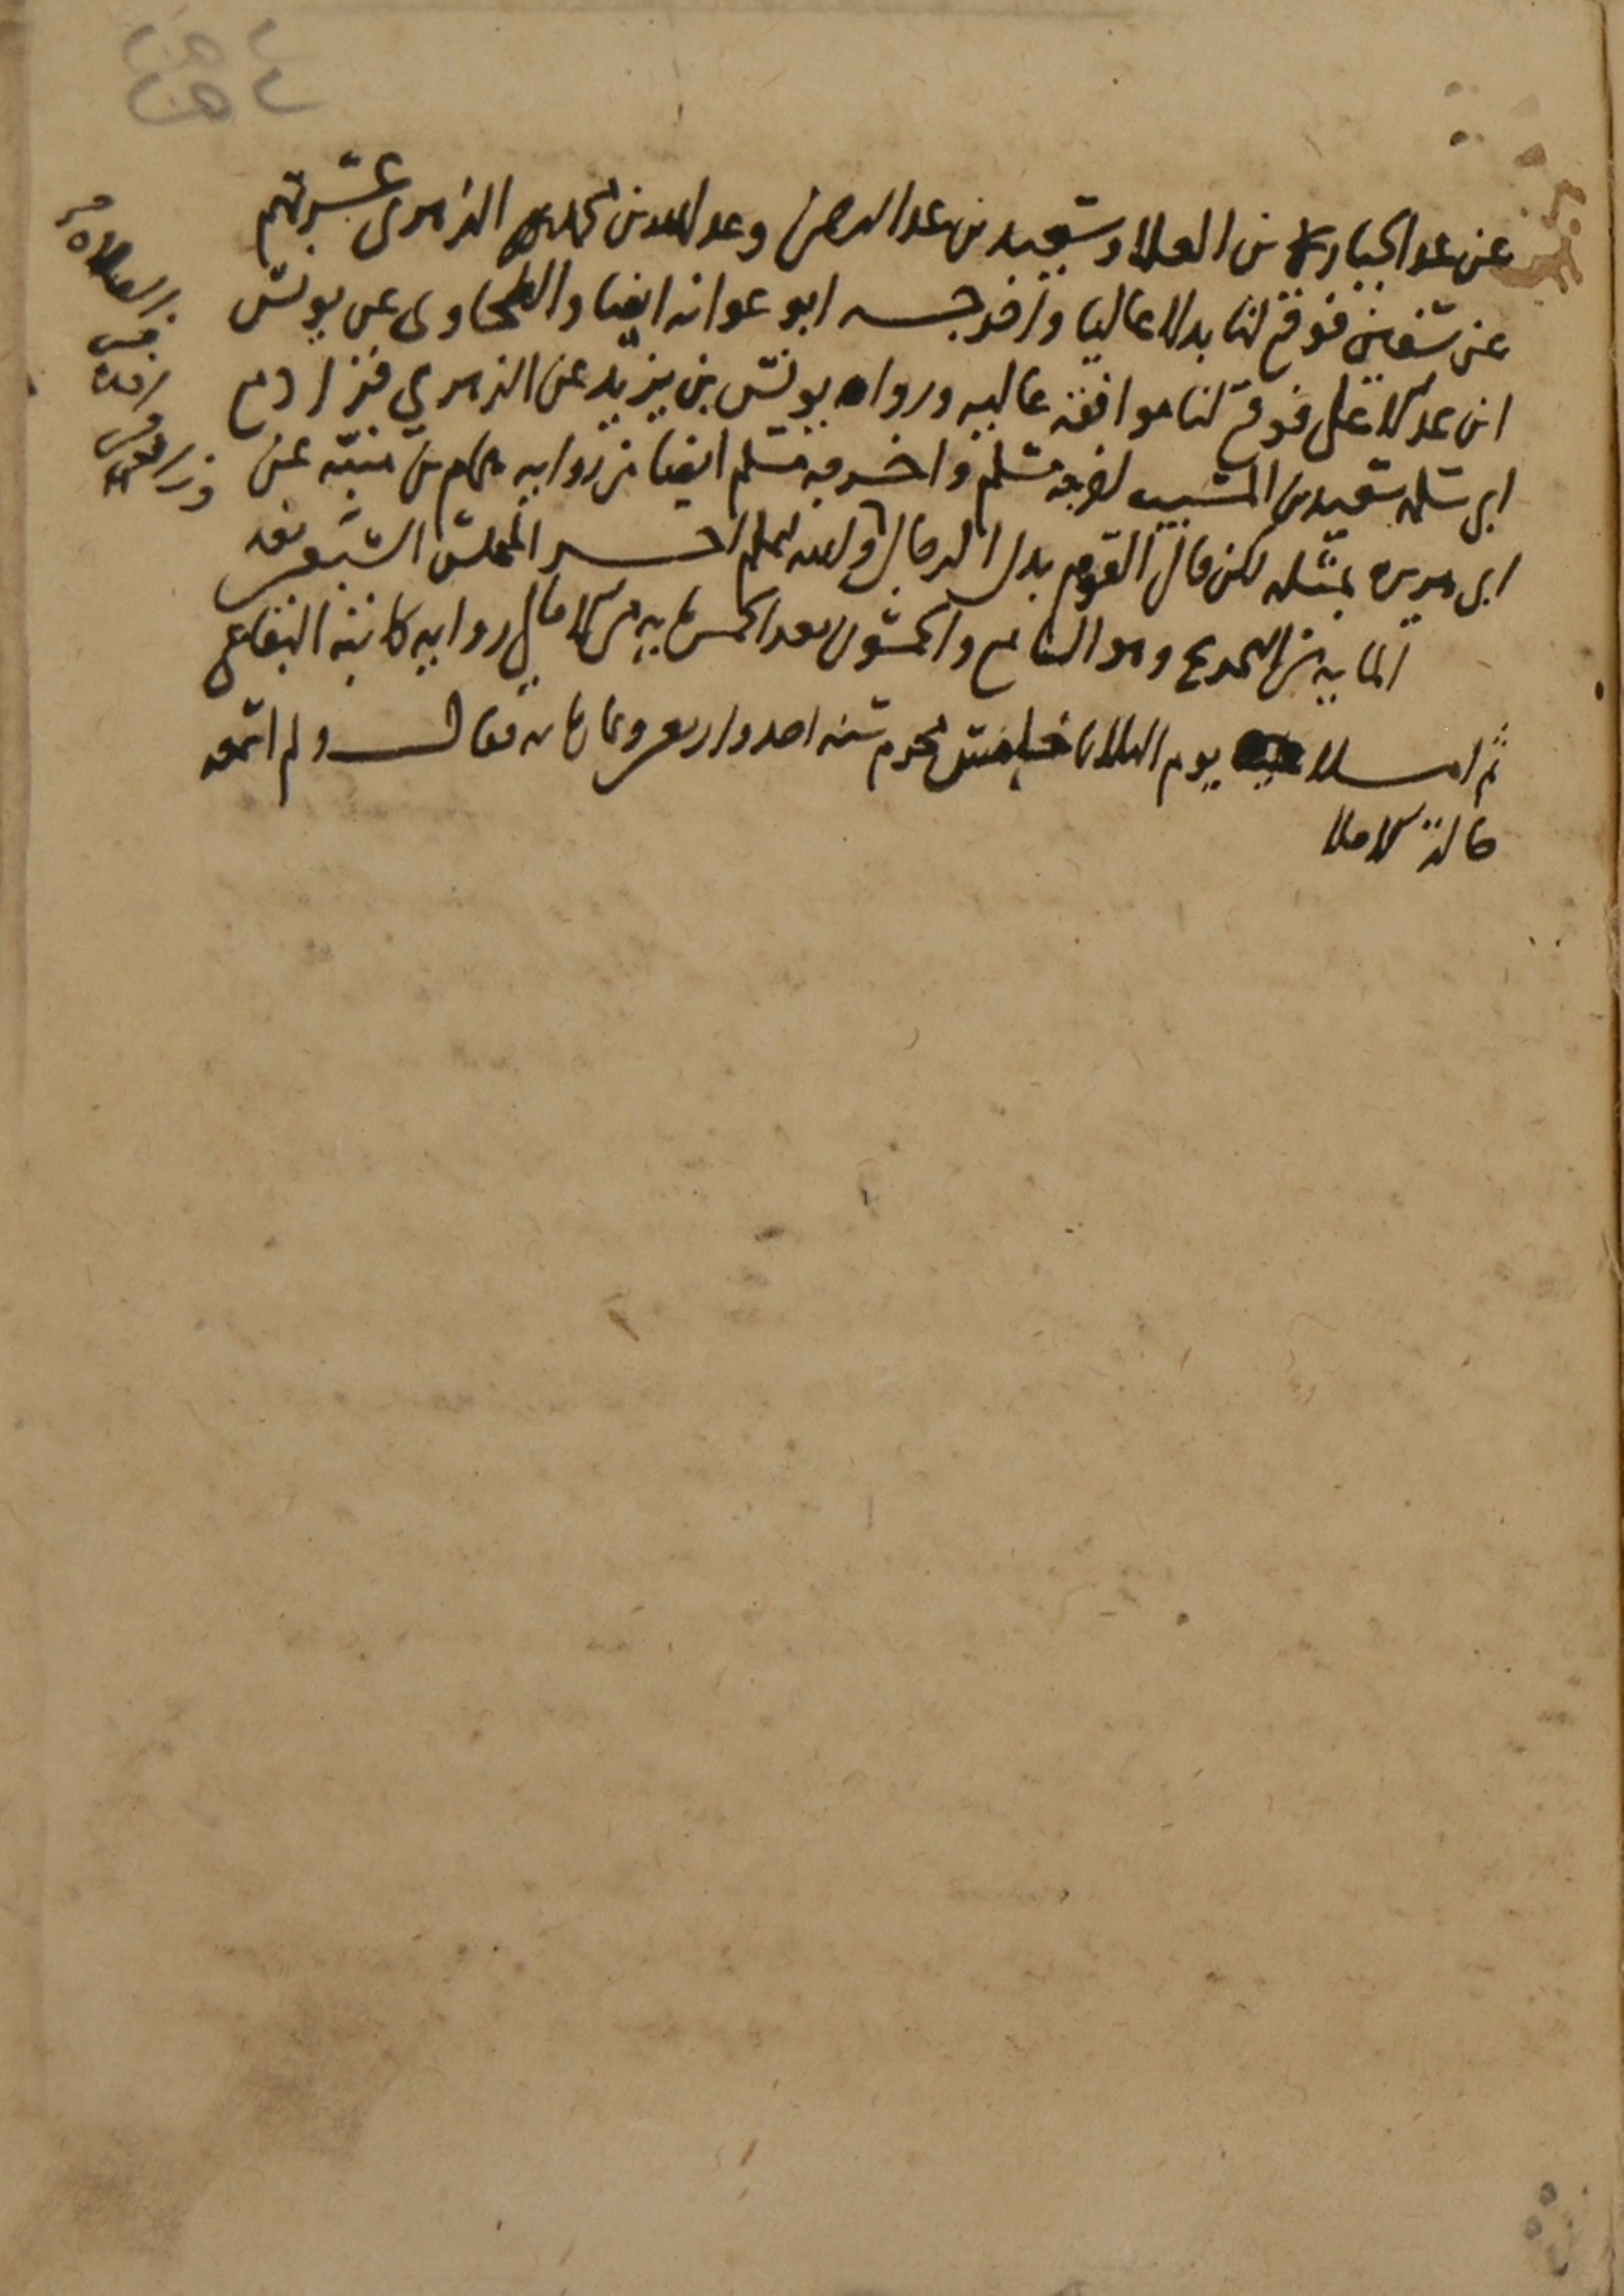 عن عبد الجبار بن العلا وسعيد بن عبد الرحمن وعبد الله بن محمد الزهري عشرتهم
عن سفين فوقع لنا بدلا عاليا واخرجه ابو عوانه ايضا والطحاوي عن يونس
ابن عبد الاعلى فوقع لنا موافقة عاليه ورواه يونس بن يزيد عن الزهري فزاد مع
ابي سلمه سعيد بن المسيب اخرجه مسلم واخرجه مسلم ايضا من روايه همام بن منبه عن
ابي هريره بمثله لكن قال القوم بدل الرجال والله اعلم اخر المجلس السبعين بعد
الماية من التخريج وهو التاسع والخمسون بعد الخمس ماية من الامالي روايه كاتبه البقاعي
ثم املا يوم الثلاثا محرم سنه احدى واربعين وثمان مايه فقال ولم اسمعه
حالة الاملا
في الصلاه